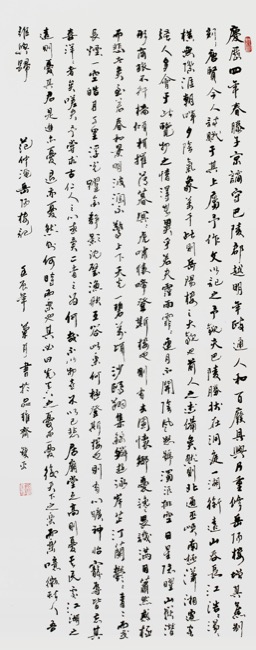 慶歷四年春滕子京謫守巴陵郡越明年政通人和百廢具興乃重修岳陽樓增其舊制
刻唐賢今人詩賦于其上屬予作文以記之予觀夫巴陵勝狀在洞庭一湖銜遠山吞長江浩浩湯湯
橫無際涯朝暉夕陰氣象萬千此則岳陽樓之大觀也前人之述備矣然則北通巫峽南極瀟湘遷客
騷人多會于此覽物之情得無異乎若夫霪雨霏霏連月不開陰風怒號濁浪排空日星隱曜山岳潛
形商旅不行檣傾楫摧薄暮冥冥虎嘯猿啼登斯樓也則有去國懷鄉憂讒畏譏滿目蕭然感極
而悲者矣至若春和景明波瀾不驚上下天光一碧萬頃沙鷗翔集錦鱗游泳岸芷汀蘭郁郁青青而或
長煙一空皓月千里浮光躍金靜影沉璧漁歌互答此樂何極登斯樓也則有心曠神怡寵辱皆忘其
喜洋洋者矣嗟夫予嘗求古仁人之心或異二者之為何哉不以物喜不以己悲居廟堂之高則憂其民處江湖之
遠則憂其君是進亦憂退亦憂然則何時而樂耶其必曰先天下之憂而憂後天下之樂而樂噫微斯人吾
誰與歸 范仲淹岳陽樓記 壬辰年 月 書於品雅齋